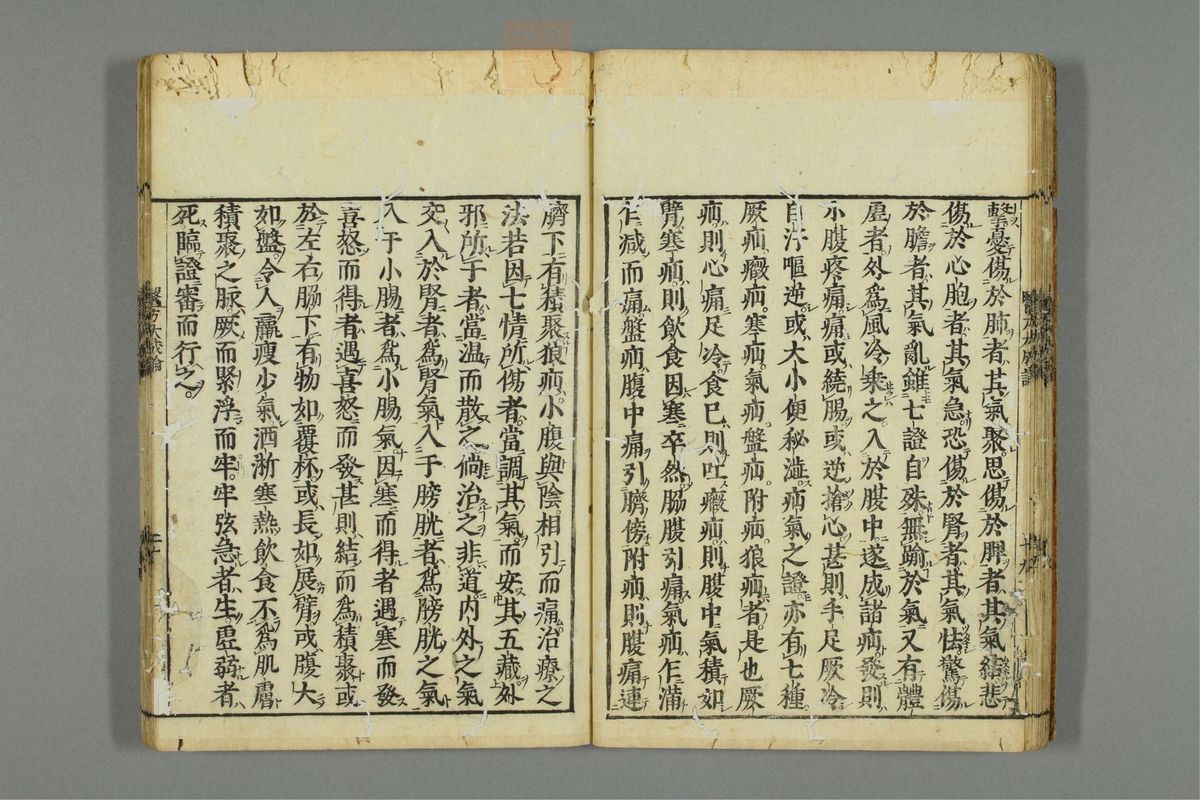 擊憂傷於肺者其氣聚思傷於脾者其氣結悲
傷於心胞者其氣急恐傷於腎者其氣怯驚傷
於膽者其氣亂雖七證自殊無踰於氣又有體
虛者外爲風冷乘之入於腹中遂成諸疝發則
小腹疼痛痛或繞腸或逆搶心甚則手足厥冷
自汗嘔逆或大小便秘澁疝氣之證亦有七種
厥疝癥疝寒疝氣疝盤疝附疝狼疝者是也厥
疝則心痛足冷食已則吐癥疝則腹中氣積如
臂寒疝則飲食因寒卒然脇腹引痛氣疝乍滿
乍减而痛盤疝腹中痛引臍傍附疝則腹痛連
臍下有積聚狼疝小腹與陰相引而痛治療之
法若因七情所傷者當調其氣而安其五藏外
邪所干者當温而散之倘治之非道内外之氣
交入於腎者爲腎氣入于膀胱者爲膀胱之氣
入于小腸者爲小腸氣因寒而得者遇寒而發
喜怒而得者遇喜怒而發甚則結而爲積聚或
於左右脇下有物如覆杯或長如展臂或腹大
如盤令人羸瘦少氣洒淅寒熱飲食不爲肌膚
積聚之脉厥而緊浮而牢牢弦急者生虛弱者
死臨證審而行之